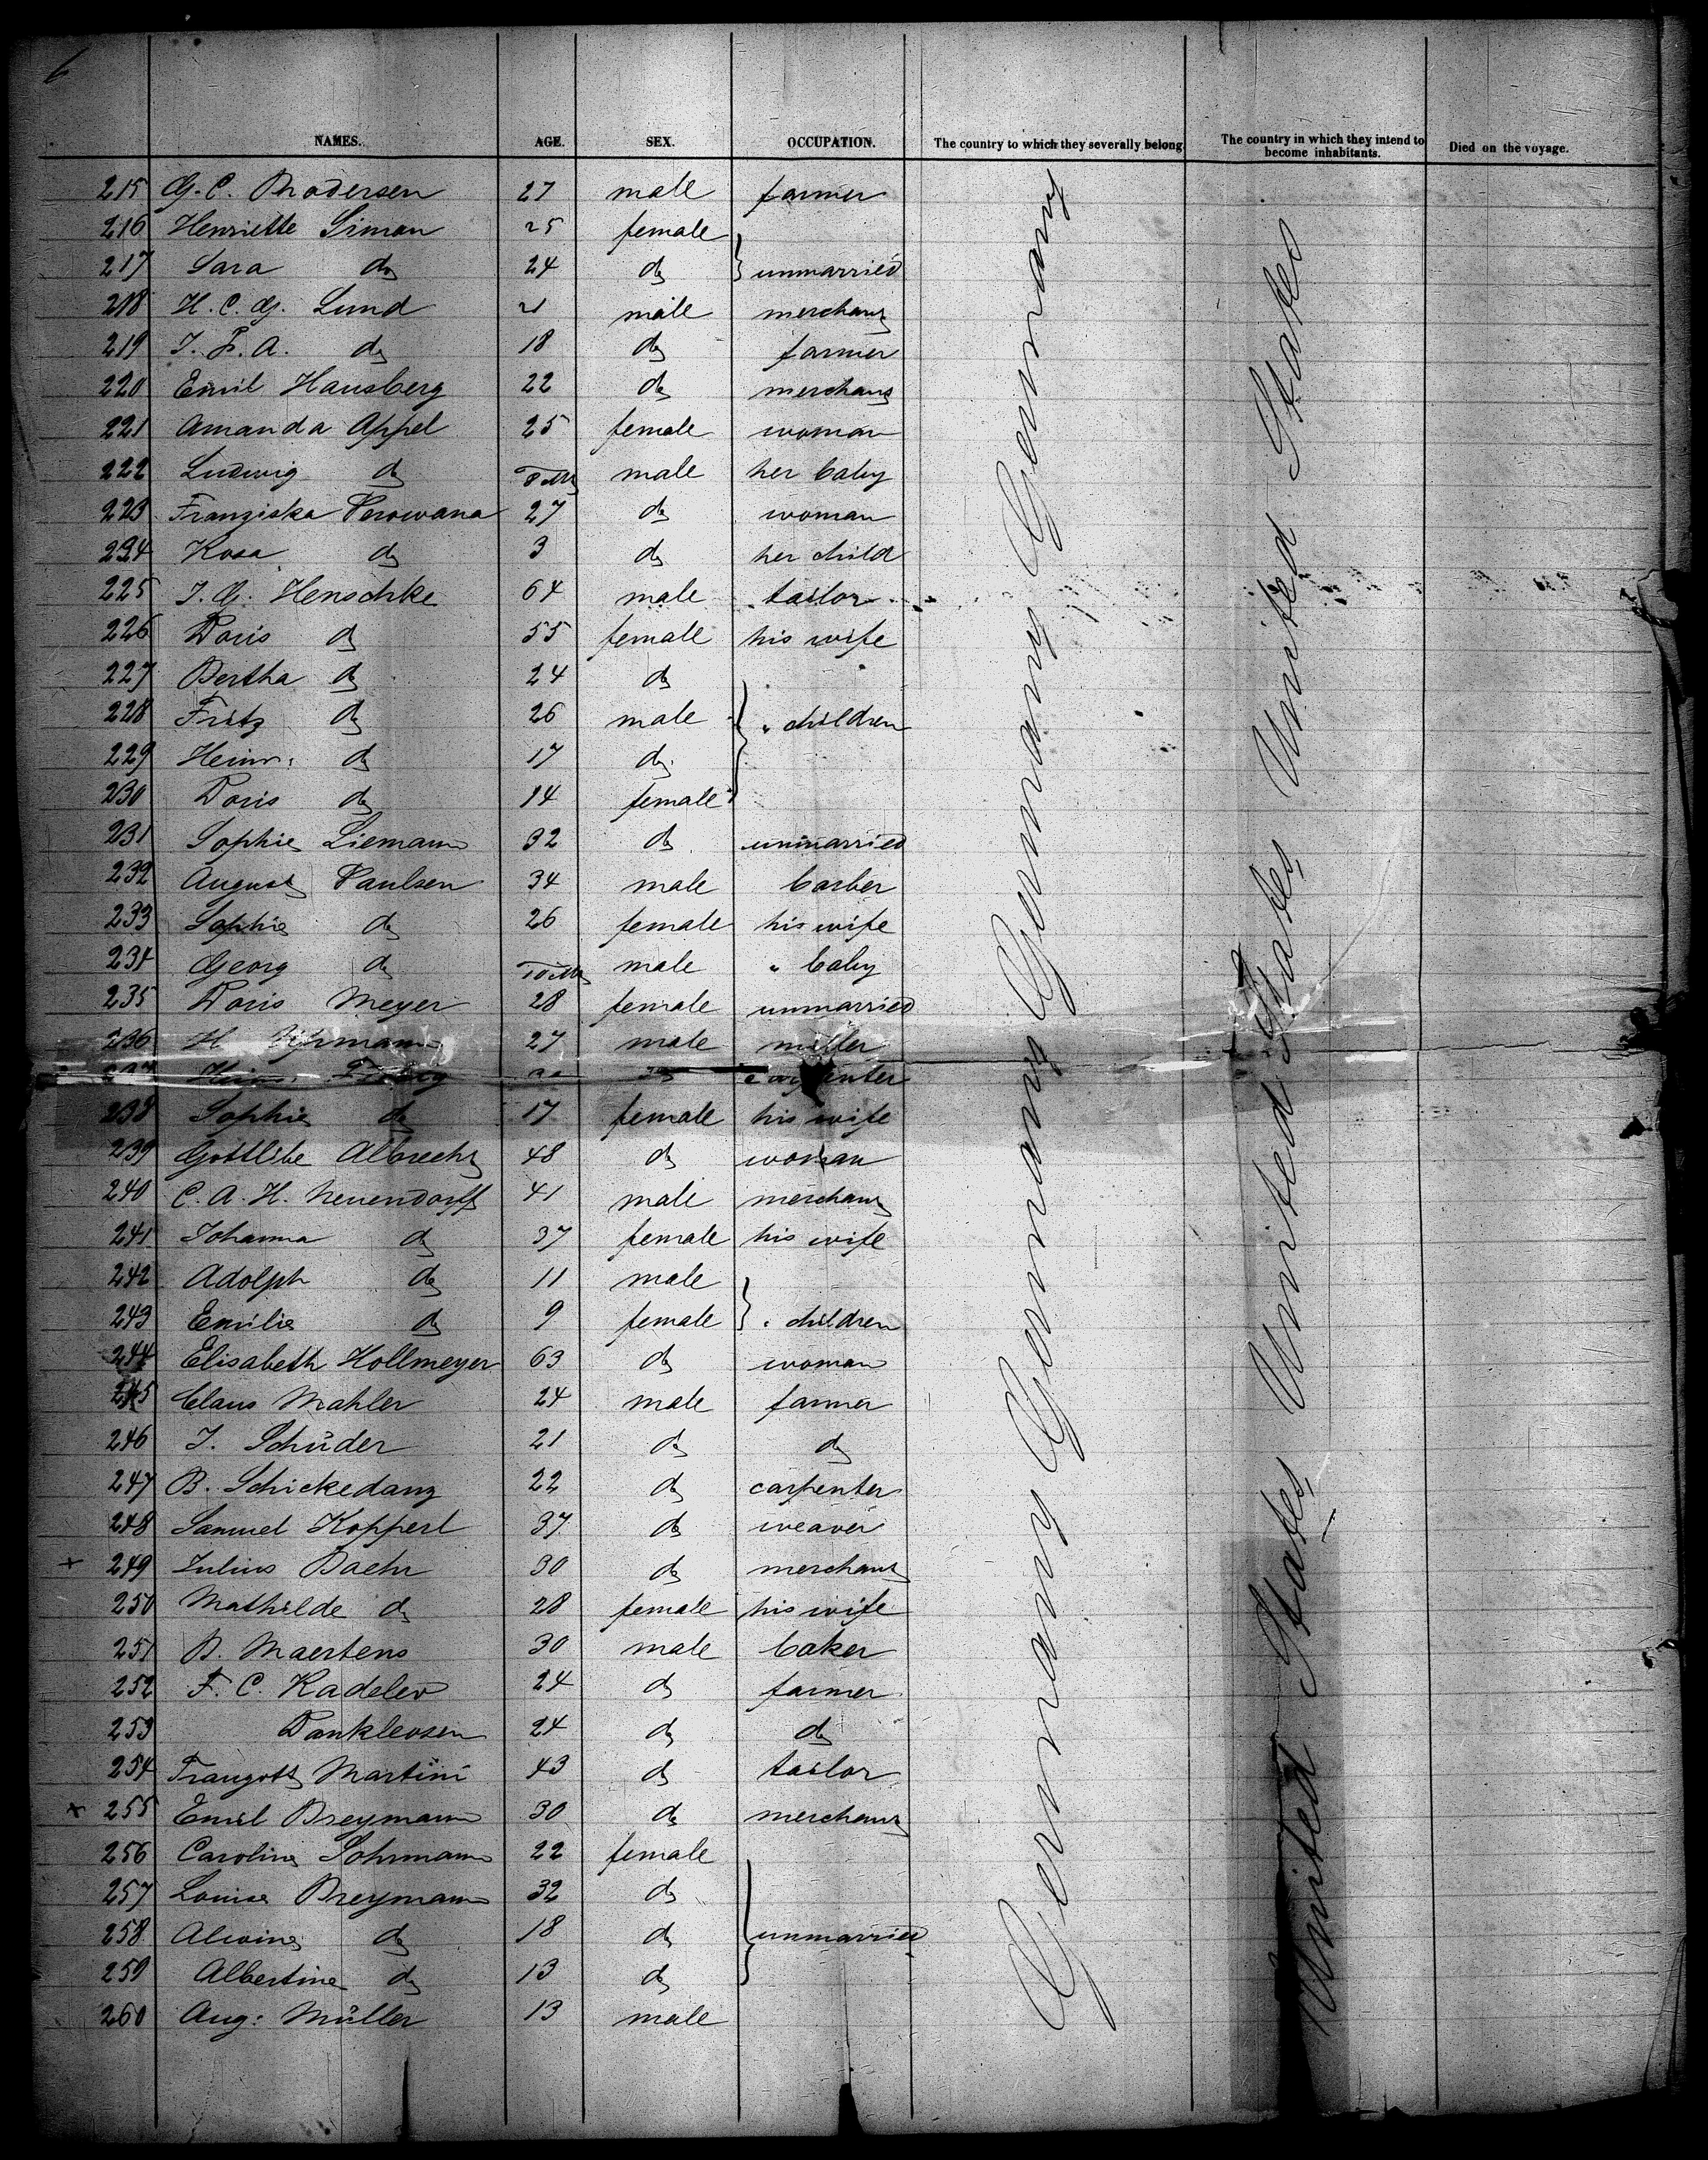 6
NAMES. AGE. SEX. OCCUPATION. The country to which they severally belong The country in which they intend to become inhabitants. Died on the voyage.
215 G. C. Brodersen 27 male farmer
216 Henriette Siman 25 female
217 Sara do 24 do } unmarried
218 H. C. G. Lund 21 male merchant
219 J. F. A. do 18 do farmer
220 Emil Hausberg 22 do merchant
221 Amanda Appel 25 female woman
222 Ludwig do 8 Mts male her baby
223 Franziska Perowana 27 do woman
224 Rosa do 3 do her child
225 J. G. Henschke 64 male tailor
226 Doris do 55 female his wife
227 Bertha do 24 do
228 Fritz do 26 male } " children
229 Heinr: do 17 do
230 Doris do 14 female
231 Sophie Liemann 32 do unmarried
232 August Paulsen 34 male barber
233 Sophie do 26 female his wife
234 Georg do 10 Mts male " baby
235 Doris Meyer 28 female unmarried
236 H 27 male miller
237 Heinr: do carpenter
238 Sophie do 17 female his wife
239 Gottlibe Albrecht 48 do woman
240 C. A. H. Neuendorff 41 male merchant
241 Johanna do 37 female his wife
242 Adolph do 11 male
243 Emilie do 9 female } " children
244 Elisabeth Hollmeyer 63 do woman
245 Claus Mahler 24 male farmer
246 J. Schüder 21 do do
247 B. Schickedanz 22 do carpenter
248 Samuel Kopperl 37 do weaver
+ 249 Julius Baehr 30 do merchant
250 Mathilde do 28 female his wife
251 B. Maertens 30 male baker
252 F. C. Kadelev 24 do farmer
253 Dankleosen 24 do do
254 Traugott Martini 43 do tailor
+ 255 Emil Breymann 30 do merchant
256 Caroline Sohrmann 22 female
257 Louise Breymann 32 do
258 Alwine do 18 do } unmarried
259 Albertine do 13 do
260 Aug: Müller 13 male
Germany Germany Germany Germany Germany
United States United States United States